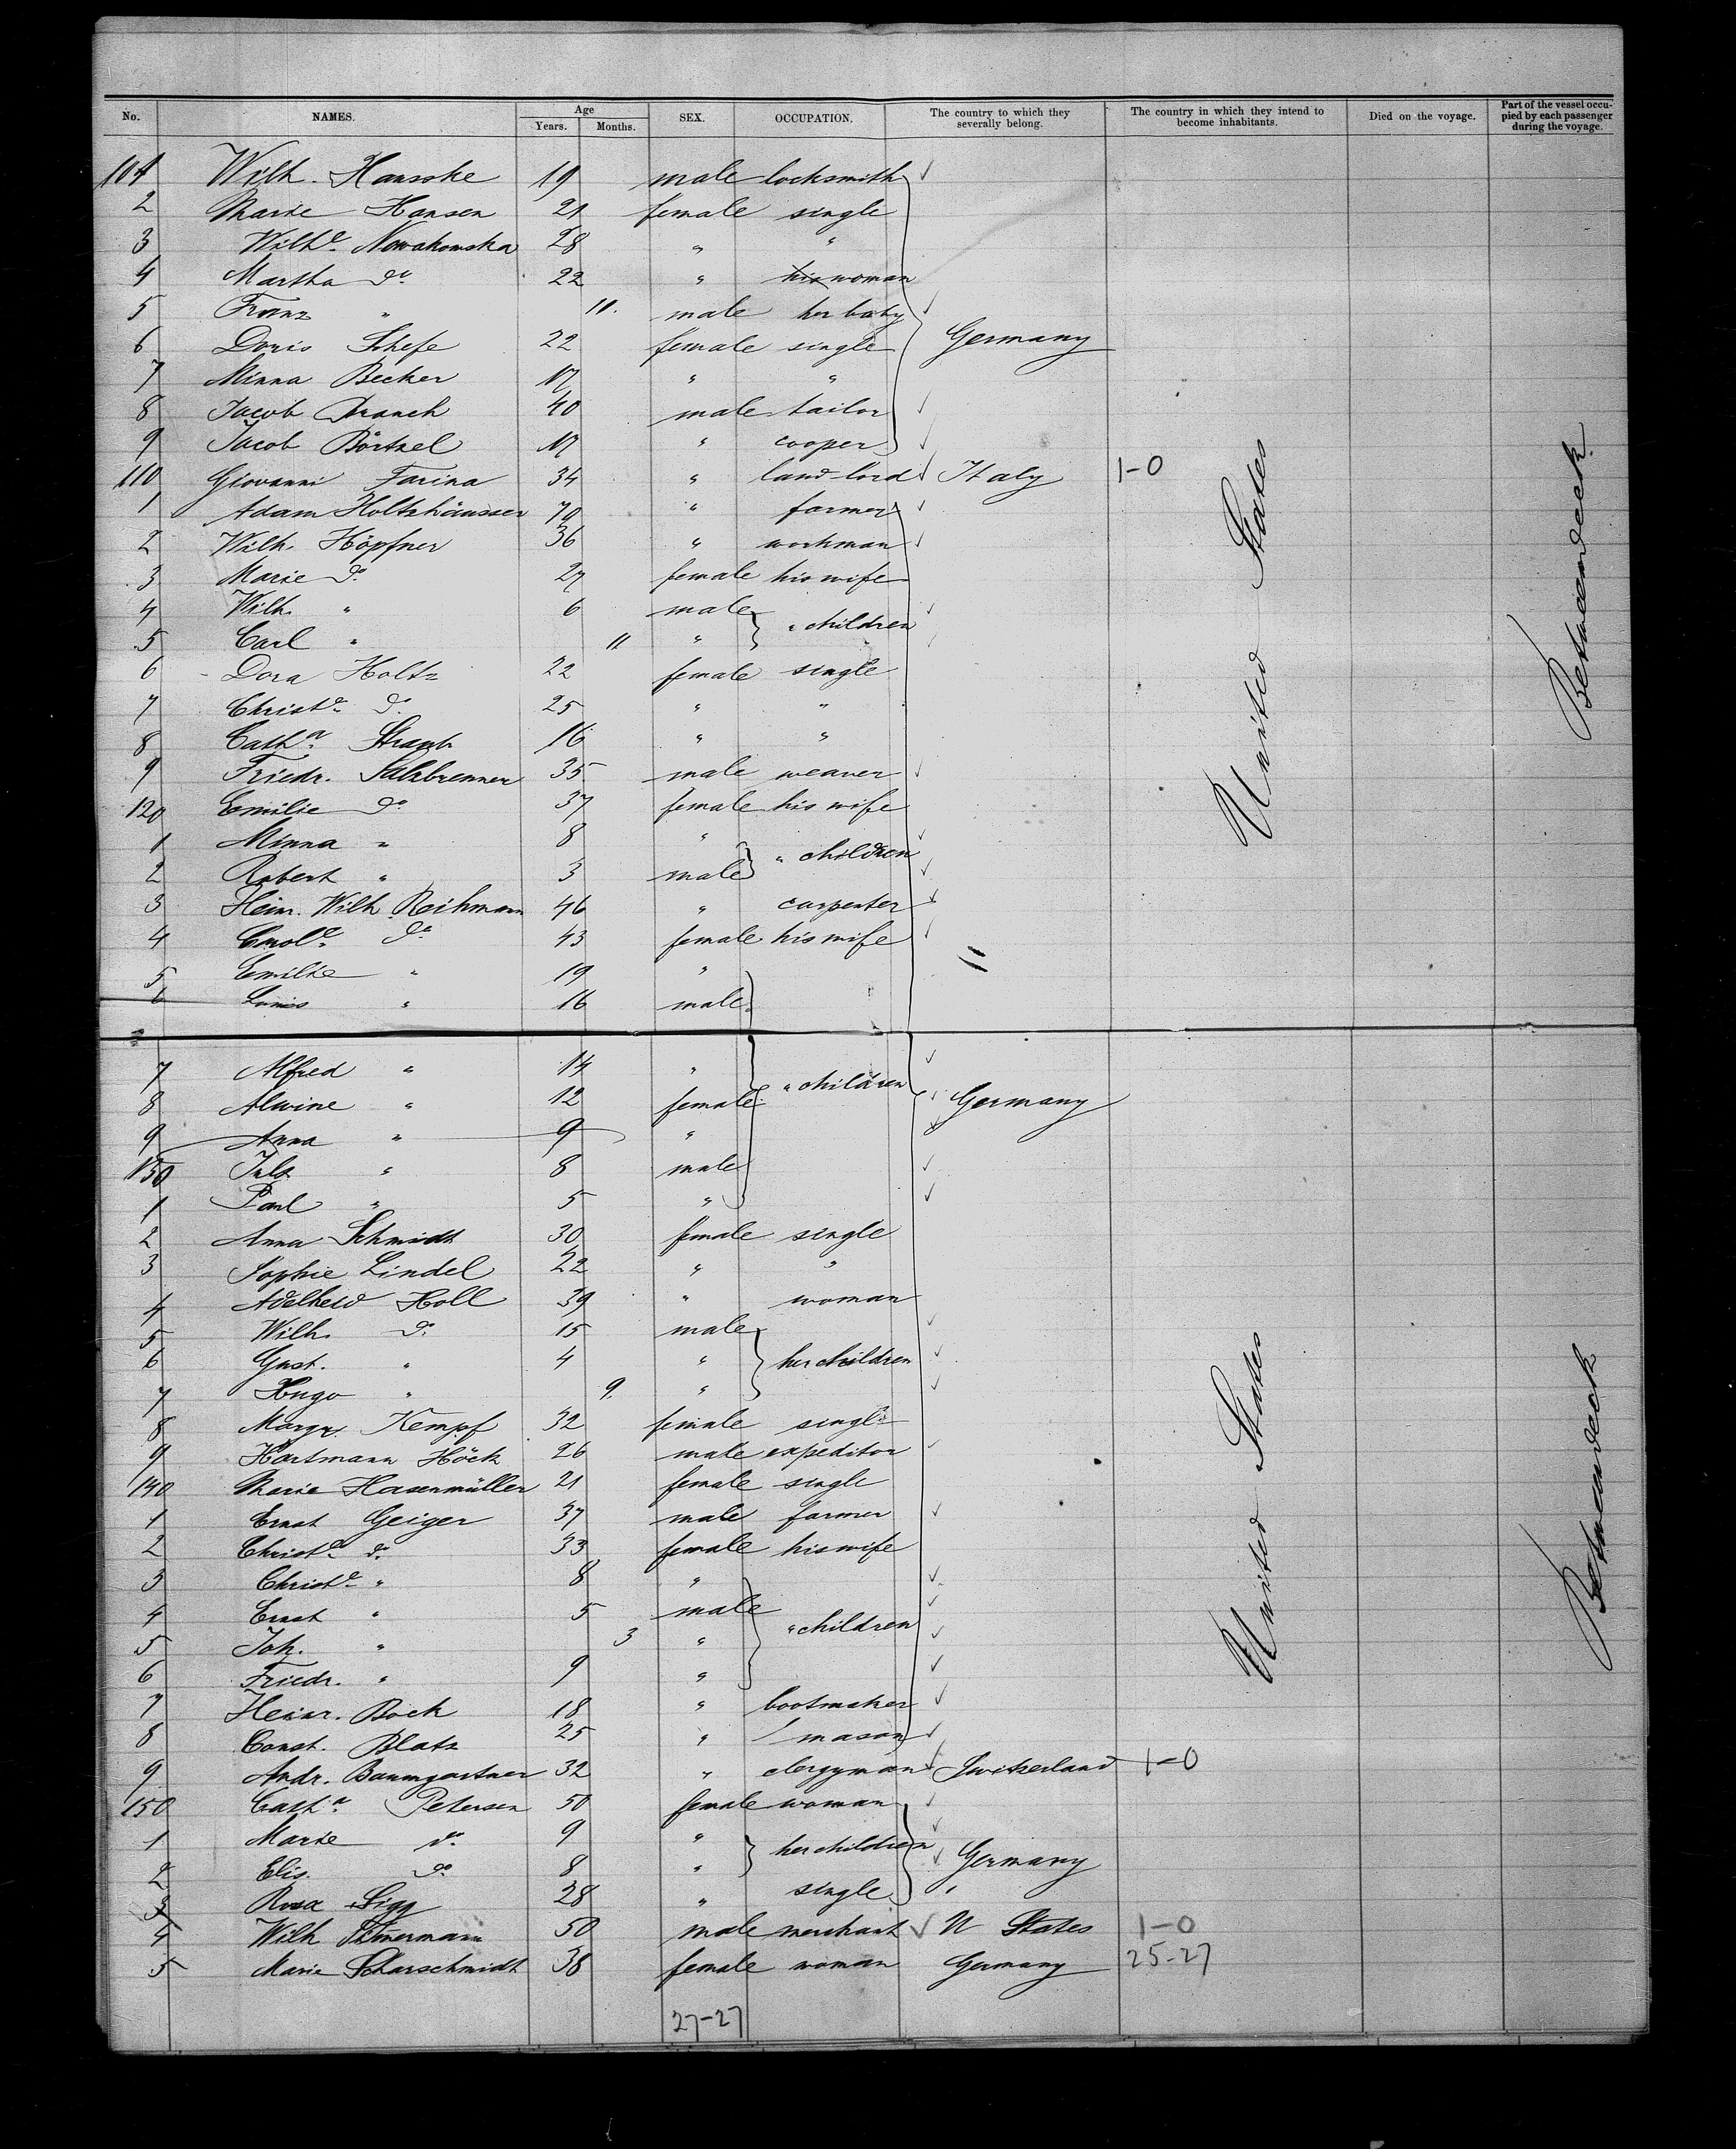 No. NAMES. Age Years. Months. SEX. OCCUPATION. The country to which they severally belong. The country in which they intend to become inhabitants. Died on the voyage. Part of the vessel occupied by each passenger during the voyage.
101 Wilh. Hanschke 19 male locksmith
2 Marie Hansen 21 female single
3 Wilhe. Nowakowska 28 " "
4 Martha do 22 " his woman
5 Franz " 10. male her baby
6 Doris Schefe 22 female single Germany
7 Minna Becker 17 " "
8 Jacob Branch 40 male tailor
9 Jacob Börtzel 17 " cooper
110 Giovanni Farina 34 " land-lord Italy 1-0
1 Adam Holtzhäusser 70 " farmer
2 Wilh. Höpfner 36 " workman
3 Marie do 27 female his wife
4 Wilh. " 6 male
" children
5 Carl " 11 "
6 Dora Holtz 22 female single
7 Christe. do 25 " "
8 Catha. Straub 16 " "
9 Friedr. Salzbrenner 35 male weaver
120 Emilie do 37 female his wife
1 Minna " 8 "
" children
2 Robert " 3 male
3 Heinr. Wilh. Reihmann 46 " carpenter
4 Carole. do 43 female his wife
5 Emilie " 19 "
6 Louis " 16 male
7 Alfred " 14 "
" children
8 Alwine " 12 female Germany
9 Anna " 9 "
130 Juls " 8 male
1 Paul " 5 "
2 Anna Schmidt 30 female single
3 Sophie Lindel 22 " "
4 Adelheid Holl 39 " woman
5 Wilh. do 15 male
6 Gust. " 4 " her children
7 Hugo " 9. "
8 Margr. Kempf 32 female single
9 Hartmann Höck 26 male expeditor
140 Marie Hasenmüller 21 female single
1 Ernst Geiger 37 male farmer
2 Christe. do 33 female his wife
3 Christe. " 8 "
4 Ernst " 5 male
" children
5 Joh. " 3 "
6 Friedr. " 9 "
7 Heinr. Bock 18 " bootmaker
8 Const. Blatz 25 " mason
9 Andr. Baumgartner 32 " clergyman Switzerland 1-0
150 Catha. Petersen 50 female woman
1 Marie do 9 "
her children
2 Elis. do 8 " Germany
3 Rosa Sigg 28 " single "
4 Wilh. 50 male merchant U States 1-0
5 Marie Scharschmidt 38 female woman Germany 25-27
27-27
United States
Betweendeck
United States
Betweendeck